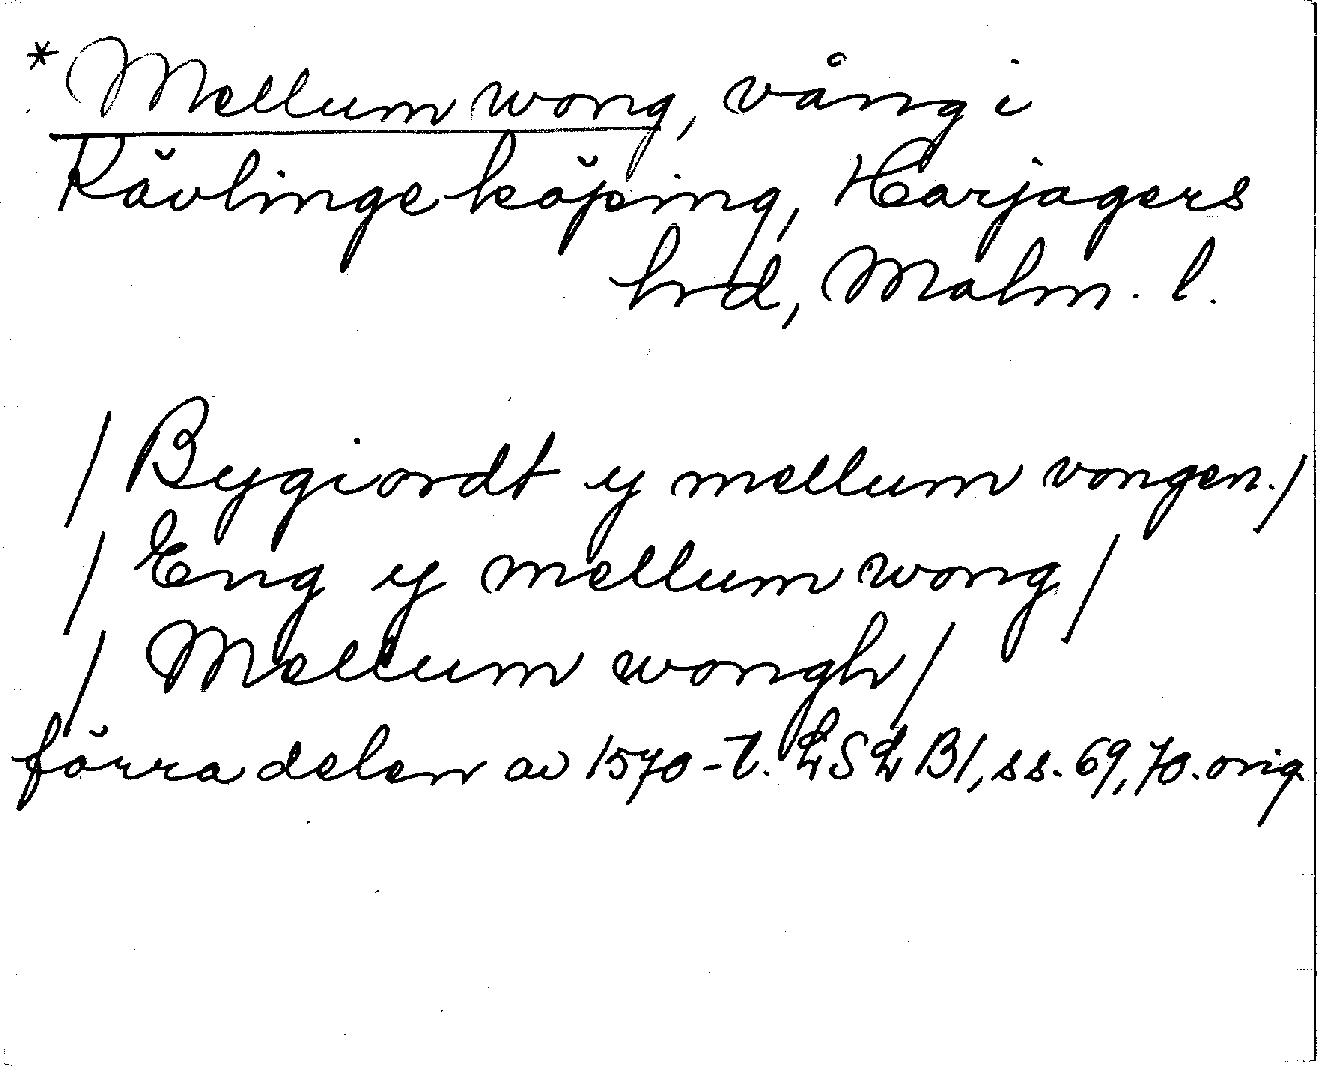 * Mellum wong, vång i
Rävlinge köping, Harjagers
hrd, Malm. l.
/ Bygiordt y mellum vongen. /
/ Eng y mellum wong /
/ Mellum wongh /
förra delen av 1570-t. LSLB1, ss. 69, 70. orig